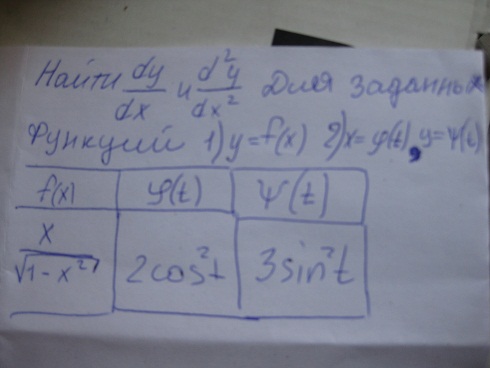 Найти dy/dx и d²y/dx² Для заданных
Функций 1) y=f(x) 2) x=φ(t), y=ψ(t)
f(x) φ(t) ψ(t)
x/√(1-x²) 2cos²t 3sin²t